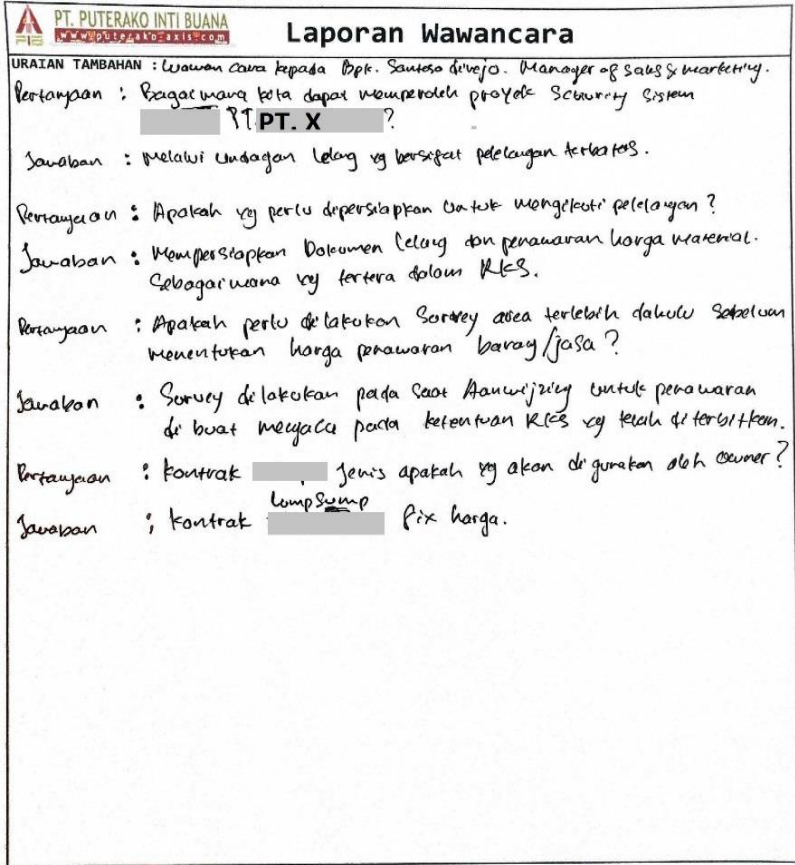 PT. PUTERAKO INTI BUANA
www.puterako-axis.com
Laporan Wawancara
URAIAN TAMBAHAN : Wawancara kepada Bpk. Santoso direjo. Manager of sales & marketing.
Pertanyaan : Bagaimana kita dapat memperoleh proyek Security Sistem
PT. X ?
Jawaban : Melalui undagan lelang yg bersifat pelelangan terbatas.
Pertanyaan : Apakah yg perlu dipersiapkan untuk mengikuti pelelangan ?
Jawaban : Mempersiapkan Dokumen lelang dan penawaran harga material.
Sebagaimana yg tertera dalam RKS.
Pertanyaan : Apakah perlu dilakukan Survey area terlebih dahulu sebelum
menentukan harga penawaran barang/jasa ?
Jawaban : Survey dilakukan pada saat Aanwijzing untuk penawaran
di buat mengacu pada ketentuan RKS yg telah diterbitkan.
Pertanyaan : kontrak Jenis apakah yg akan di gunakan oleh owner ?
Jawaban : kontrak LumpSump fix harga.